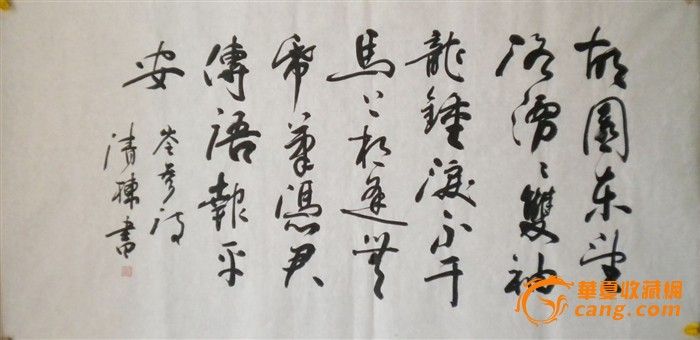 故園东望
路漫〻雙袖
龍鍾淚不干
馬上相逢無
帋筆憑君
傳語報平
安
岑参诗
清棟書
華夏收藏網
cang.com